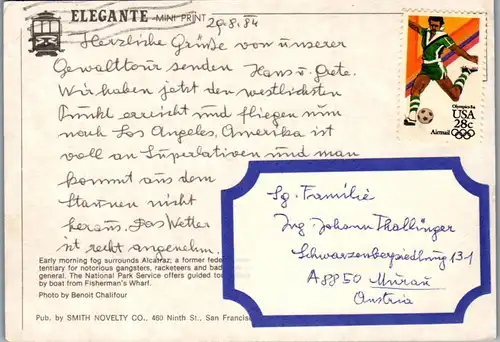 ELEGANTE MINI PRINT
29.8.84
Herzliche Grüße von unserer
Gewalttour senden Hans u. Grete.
Wir haben jetzt den westlichsten
Punkt erreicht und fliegen nun
nach Los Angeles. Amerika ist
voll an Superlativen und man
kommt aus dem
Staunen nicht
heraus. Das Wetter
ist recht angenehm.
Early morning fog surrounds Alcatraz; a former fede
tentiary for notorious gangsters, racketeers and bad
general. The National Park Service offers guided to
by boat from Fisherman's Wharf.
Photo by Benoit Chalifour
Pub. by SMITH NOVELTY CO., 460 Ninth St., San Francis
Olympics 84
USA
28c
Airmail
Sg. Familie
Ing. Johann Thallinger
Schwarzenbergsiedlung 131
A 8850 Murau
Austria